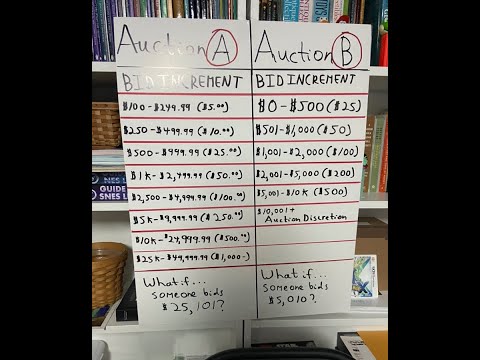 Auction A
BID INCREMENT
$100-$249.99 ($5.00)
$250-$499.99 ($10.00)
$500-$999.99 ($25.00)
$1K-$2,499.99 ($50.00)
$2,500-$4,999.99 ($100.00)
$5K-$9,999.99 ($250.00)
$10K-$24,999.99 ($500.00)
$25K-$49,999.99 ($1,000-)
What if...
someone bids
$25,101?
Auction B
BID INCREMENT
$0-$500 ($25)
$501-$1,000 ($50)
$1,001-$2,000 ($100)
$2,001-$5,000 ($200)
$5,001-$10K ($500)
$10,001+
Auction Discretion
What if...
someone bids
$5,010?
NES
GUIDE
SNES